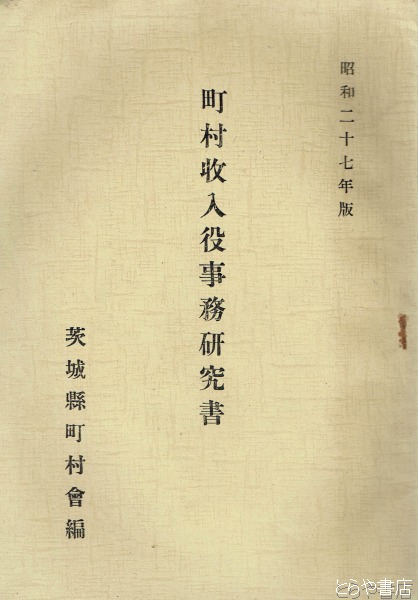 昭和二十七年版
町村收入役事務研究書
茨城縣町村會編
とらや書店